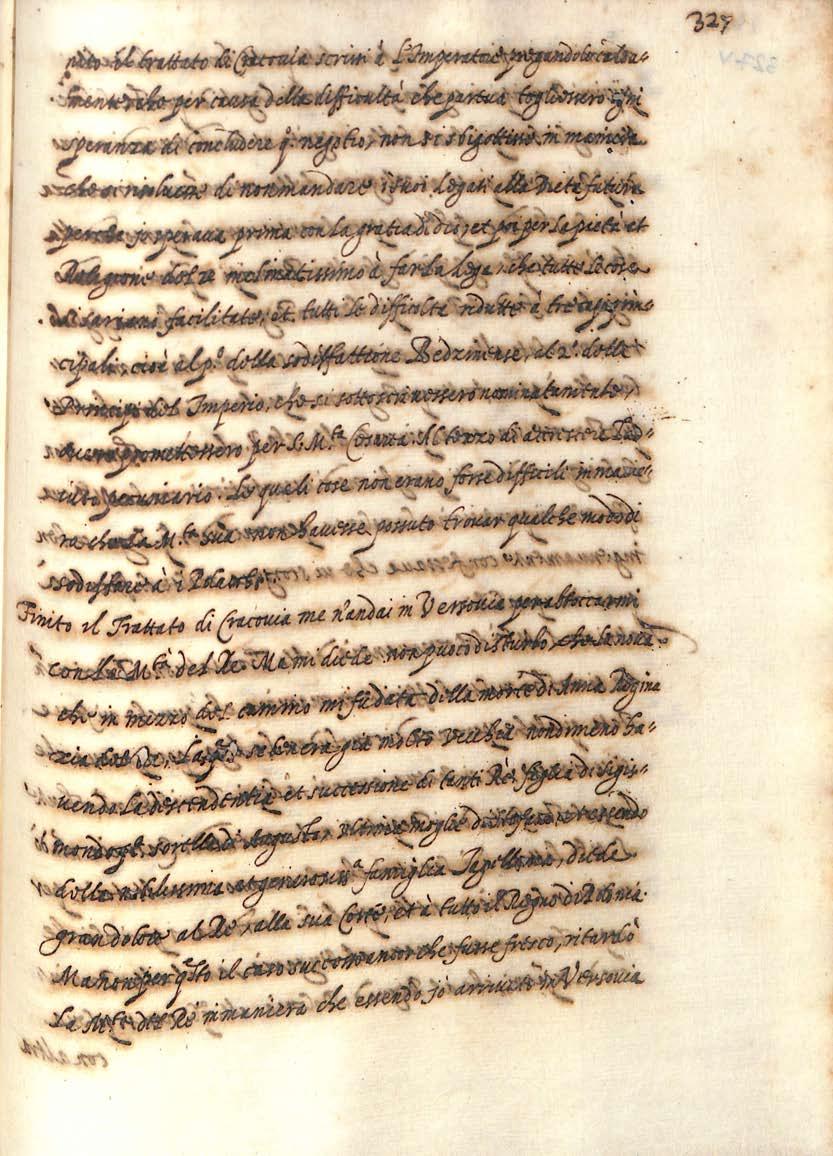 327
nito il trattato di Cracovia scrissi à L'Imperatore pregandolo calda-
mente che per causa della difficultà che pareva togliessero ogni
speranza di concludere q.º negotio, non si sbigottisse in maniera
che si risolvesse di non mandare i suoi legati alla Dieta futura
perche io sperava prima con la gratia di dio, et poi per la pietà et
Religione del Re inclinatissimo à far la lega, che tutte le cose
si sariano facilitate, et tutti le difficoltà ridutte à tre capi prin-
cipali, cioè al p.º della sodisfattione Bedzinense, al 2.º delli
Principi del Imperio, che si sottoscrivessero nominatamente,
promettessero per S. M.tà Cesarea. Al terzo di
iuto pecuniario. Le quali cose non erano forse difficili in manie-
ra che la M.tà Sua non havesse possuto trovar qualche modo di
sodisfare à i Polacchi.
Finito il Trattato di Cracovia me n'andai in Versovia per abboccarmi
con la M.tà del Re. Ma mi diede non puoco disturbo, che la nova
che in mezzo del camino mi fu data della morte di Anna Regina
zia del Re, la q.le se ben era già molto vecchia nondimeno ha-
vendo la discendentia et successione di tanti Rè, figlia di Sigis-
mondo sorella di Augusto, ultima moglie di Stefano, et essendo
della nobilissima et generosiss.a famiglia Jagellona, diede
gran dolore al Re, alla sua Corte, et à tutto il Regno di Polonia.
Ma non per q.sto il caso successo ancor che fusse fresco, ritardò
La M.tà del Re in maniera che essendo io arrivato in Versovia
con altra